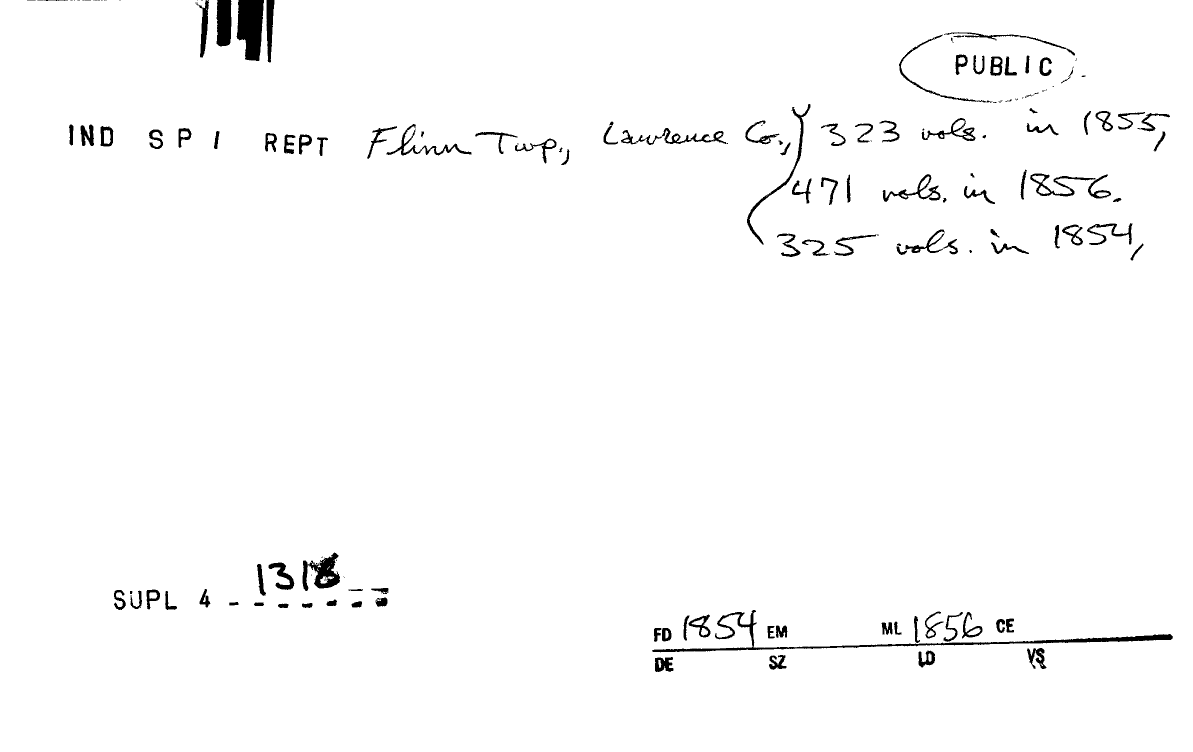 PUBLIC
IND S P I REPT Flinn Twp., Lawrence Co., 323 vols. in 1855,
471 vols. in 1856.
325 vols. in 1854,
SUPL 4 - 1318
FD 1854 EM ML 1856 CE
DE SZ LD VS